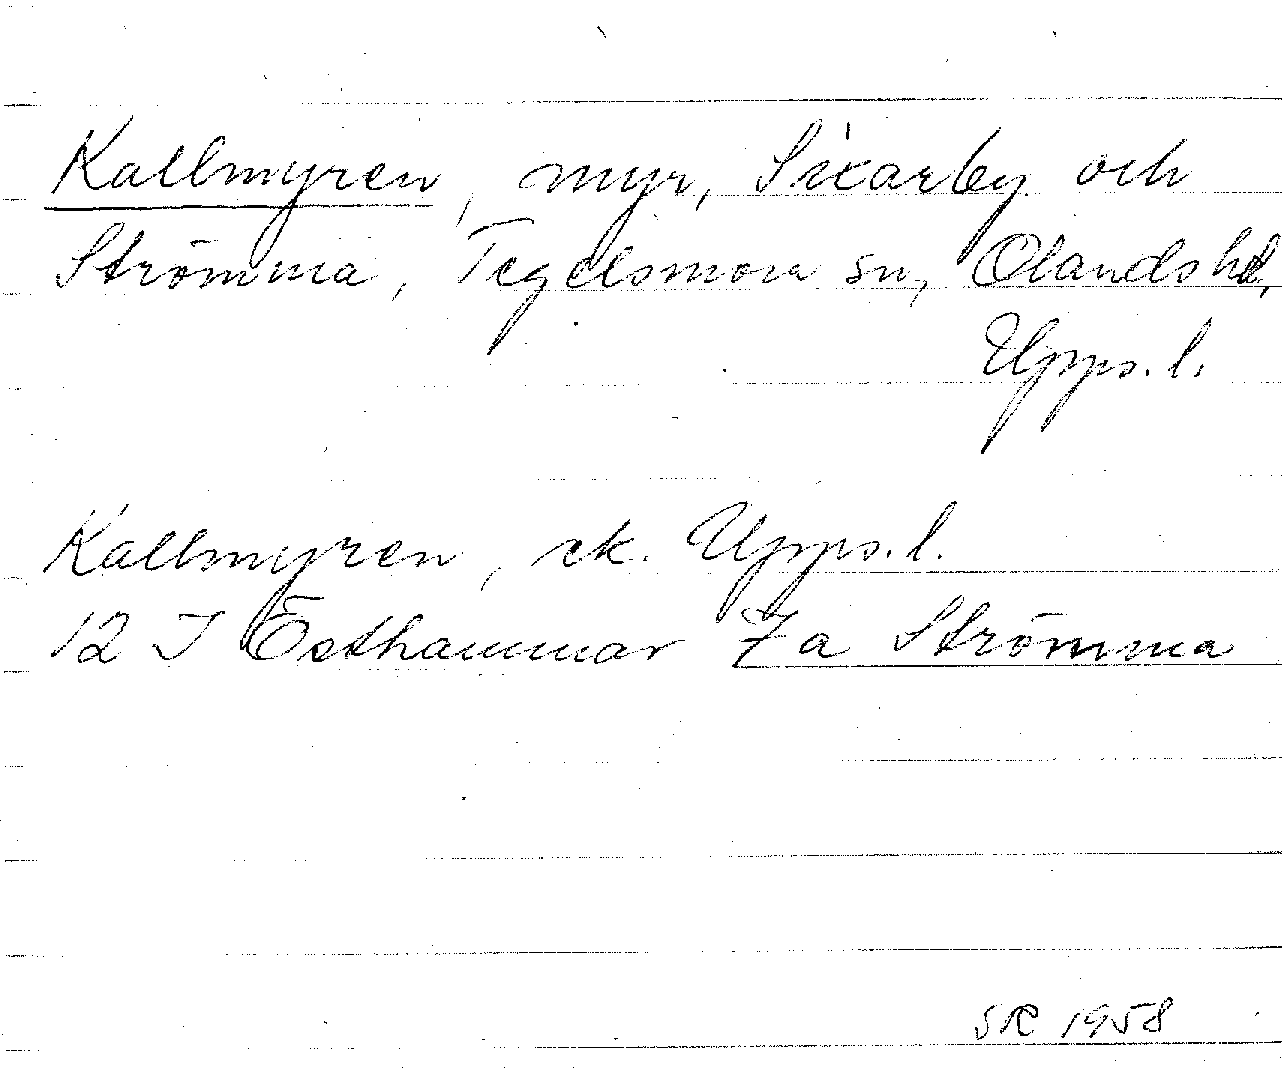 Kallmyren, myr, Sixarby och
Strömma, Tegelsmora sn, Olands hd,
Upps. l.
Kallmyren, ek. Upps. l.
12 I Östhammar 7a Strömma
SR 1958